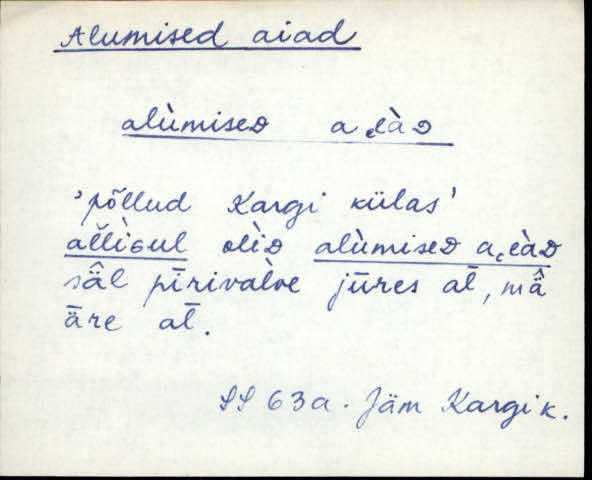 Alumised aiad
alùmiseᴅ a˛eàᴅ
'põllud Kargi külas'
al̆lìɢul olìᴅ alùmiseᴅ a˛eàᴅ
sä̂l pīrivalve jūres al̄, mä̂
ǟre al̄.
SS 63a. Jäm Kargi k.